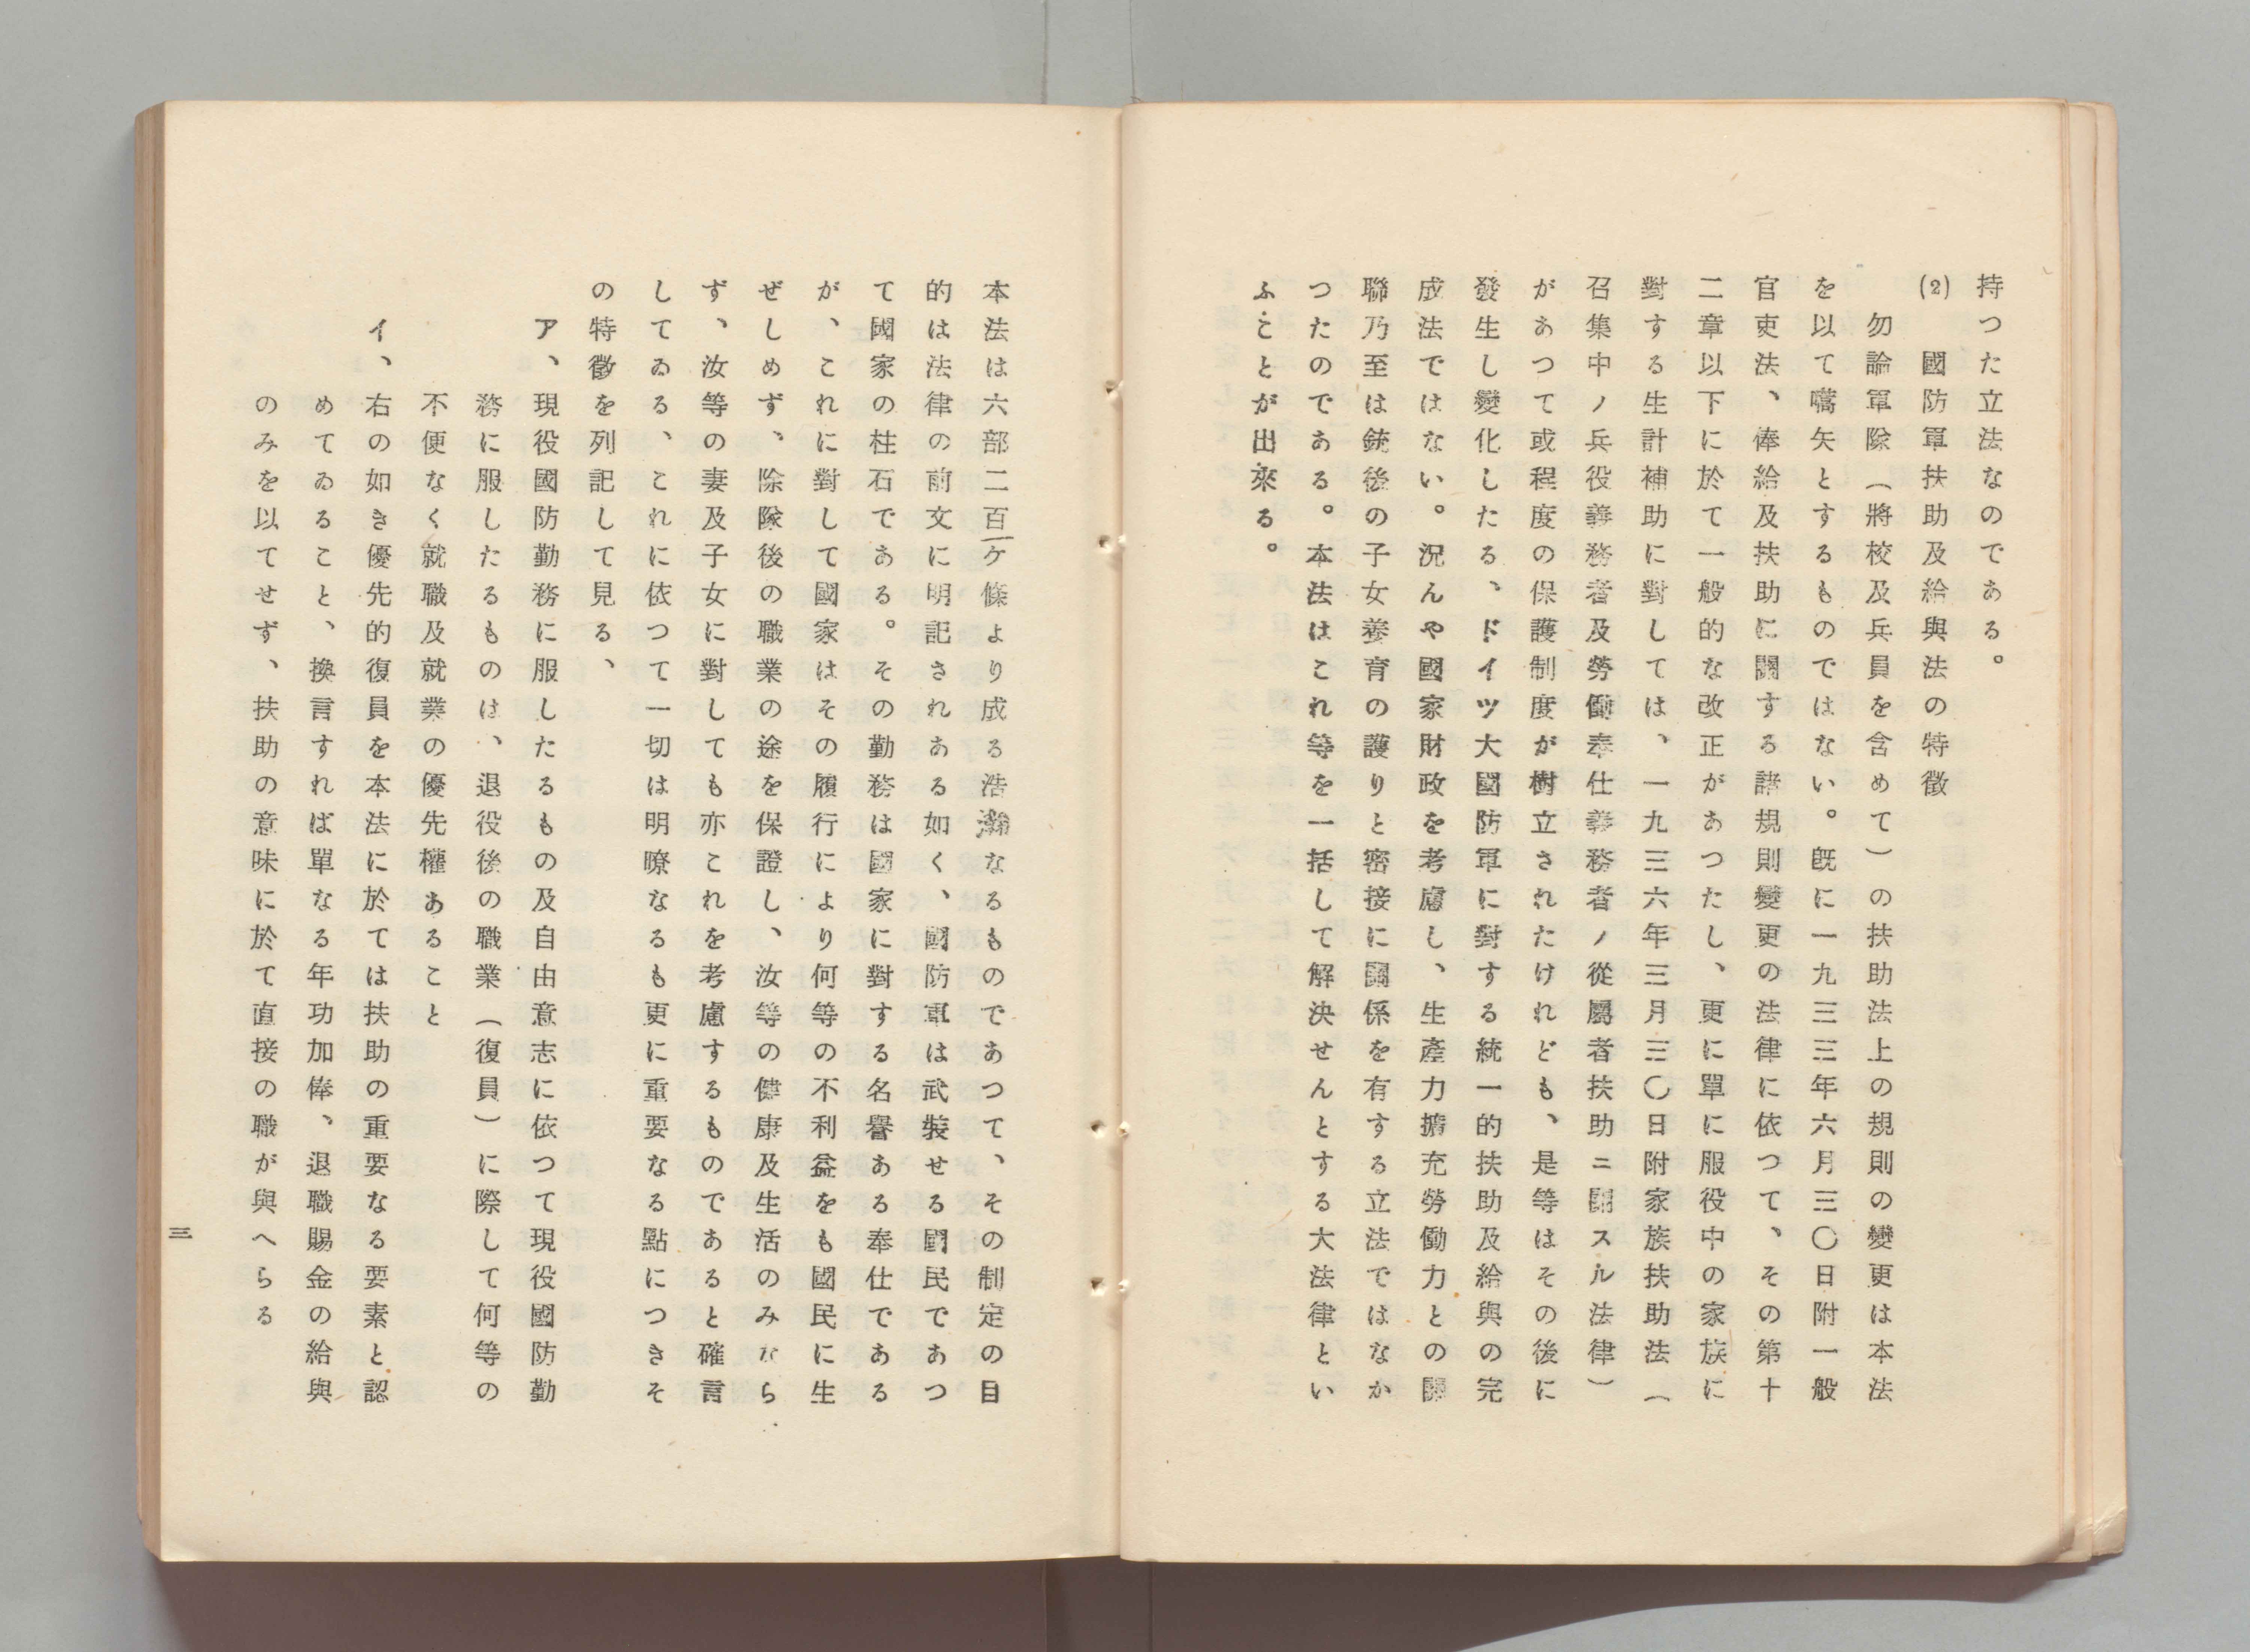 持つた立法なのである。
(2)　國防軍扶助及給與法の特徵
勿論軍隊（將校及兵員を含めて）の扶助法上の規則の變更は本法
を以て嚆矢とするものではない。旣に一九三三年六月三〇日附一般
官吏法、俸給及扶助に關する諸規則變更の法律に依つて、その第十
二章以下に於て一般的な改正があつたし、更に單に服役中の家族に
對する生計補助に對しては、一九三六年三月三〇日附家族扶助法（
召集中ノ兵役義務者及勞働奉仕義務者ノ從屬者扶助ニ關スル法律）
があつて或程度の保護制度が樹立されたけれども、是等はその後に
發生し變化したる、ドイツ大國防軍に對する統一的扶助及給與の完
成法ではない。況んや國家財政を考慮し、生產力擴充勞働力との關
聯乃至は銃後の子女養育の護りと密接に關係を有する立法ではなか
つたのである。本法はこれ等を一括して解決せんとする大法律とい
ふことが出來る。
本法は六部二百一ケ條より成る浩瀚なるものであつて、その制定の目
的は法律の前文に明記されある如く、國防軍は武裝せる國民であつ
て國家の柱石である。その勤務は國家に對する名譽ある奉仕である
が、これに對して國家はその履行により何等の不利益をも國民に生
ぜしめず、除隊後の職業の途を保證し、汝等の健康及生活のみなら
ず、汝等の妻及子女に對しても亦これを考慮するものであると確言
してゐる、これに依つて一切は明瞭なるも更に重要なる點につきそ
の特徵を列記して見る、
ア、現役國防勤務に服したるもの及自由意志に依つて現役國防勤
務に服したるものは、退役後の職業（復員）に際して何等の
不便なく就職及就業の優先權あること
イ、右の如き優先的復員を本法に於ては扶助の重要なる要素と認
めてゐること、換言すれば單なる年功加俸、退職賜金の給與
のみを以てせず、扶助の意味に於て直接の職が與へらる
三